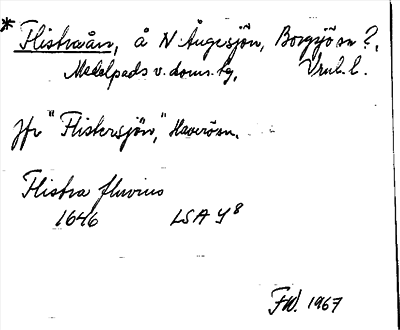 * Flistraån, å N Ångesjön, Borgsjö sn ?,
Medelpads v. doms. tg,
Jfr "Flistersjön," Haverö sn.
Flistra fluvius
1646 LSA Y 8
FW. 1967